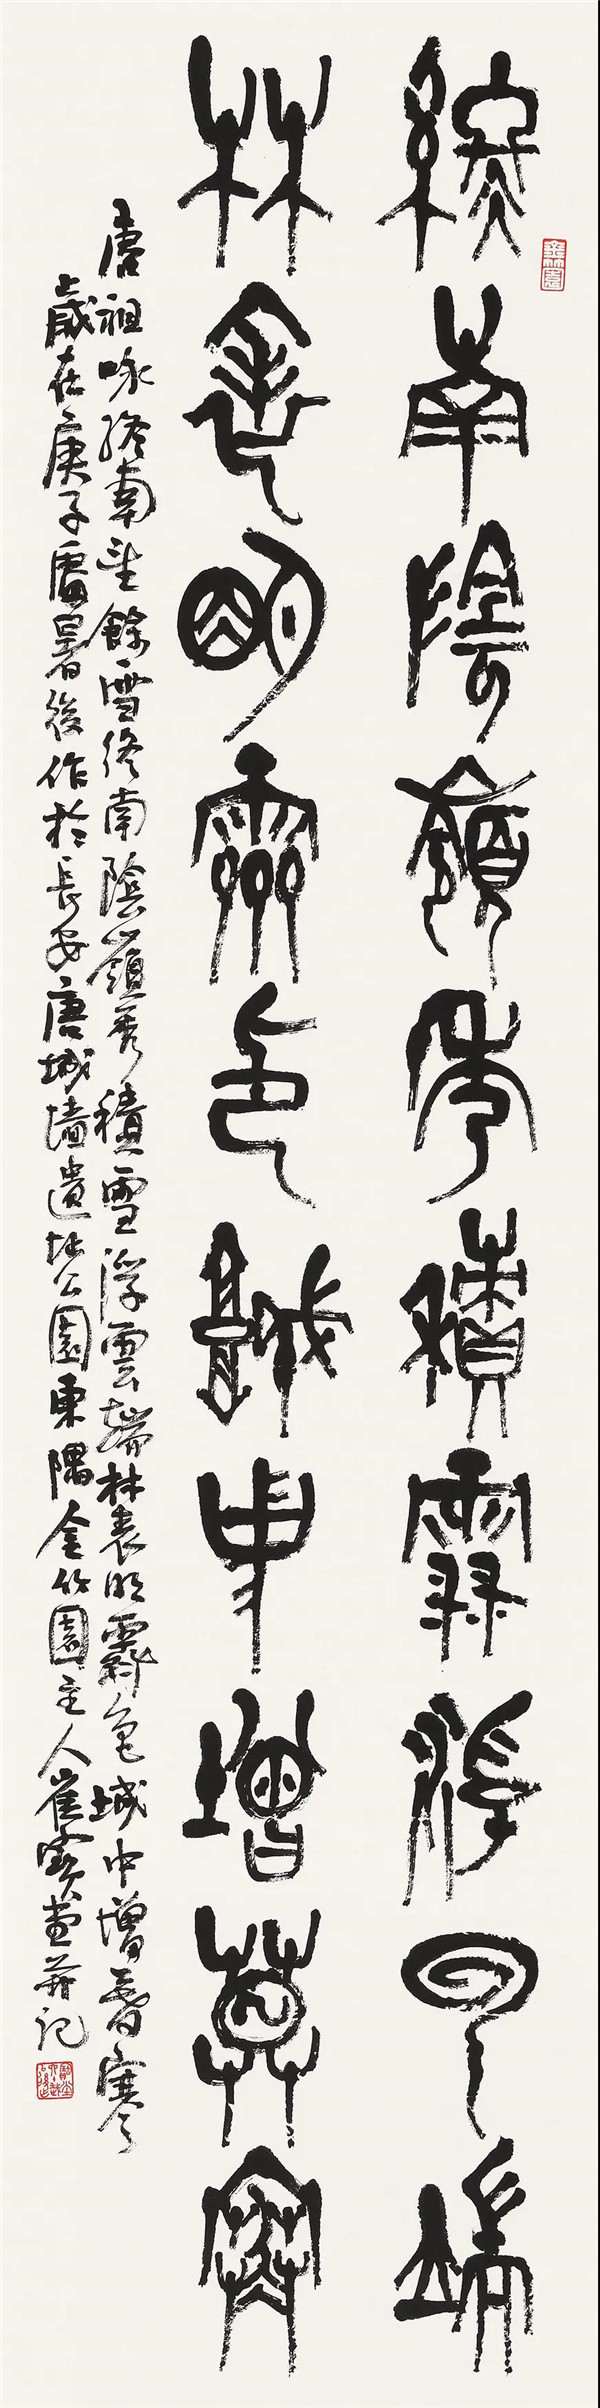 終南陰嶺秀積雪浮雲端
林表明霽色城中增莫寒
唐祖咏終南望餘雪終南陰嶺秀積雪浮雲端林表明霽色城中增暮寒
歲在庚子處暑後作於長安唐城墻遺址公園東隅金竹園主人崔寶堂并記